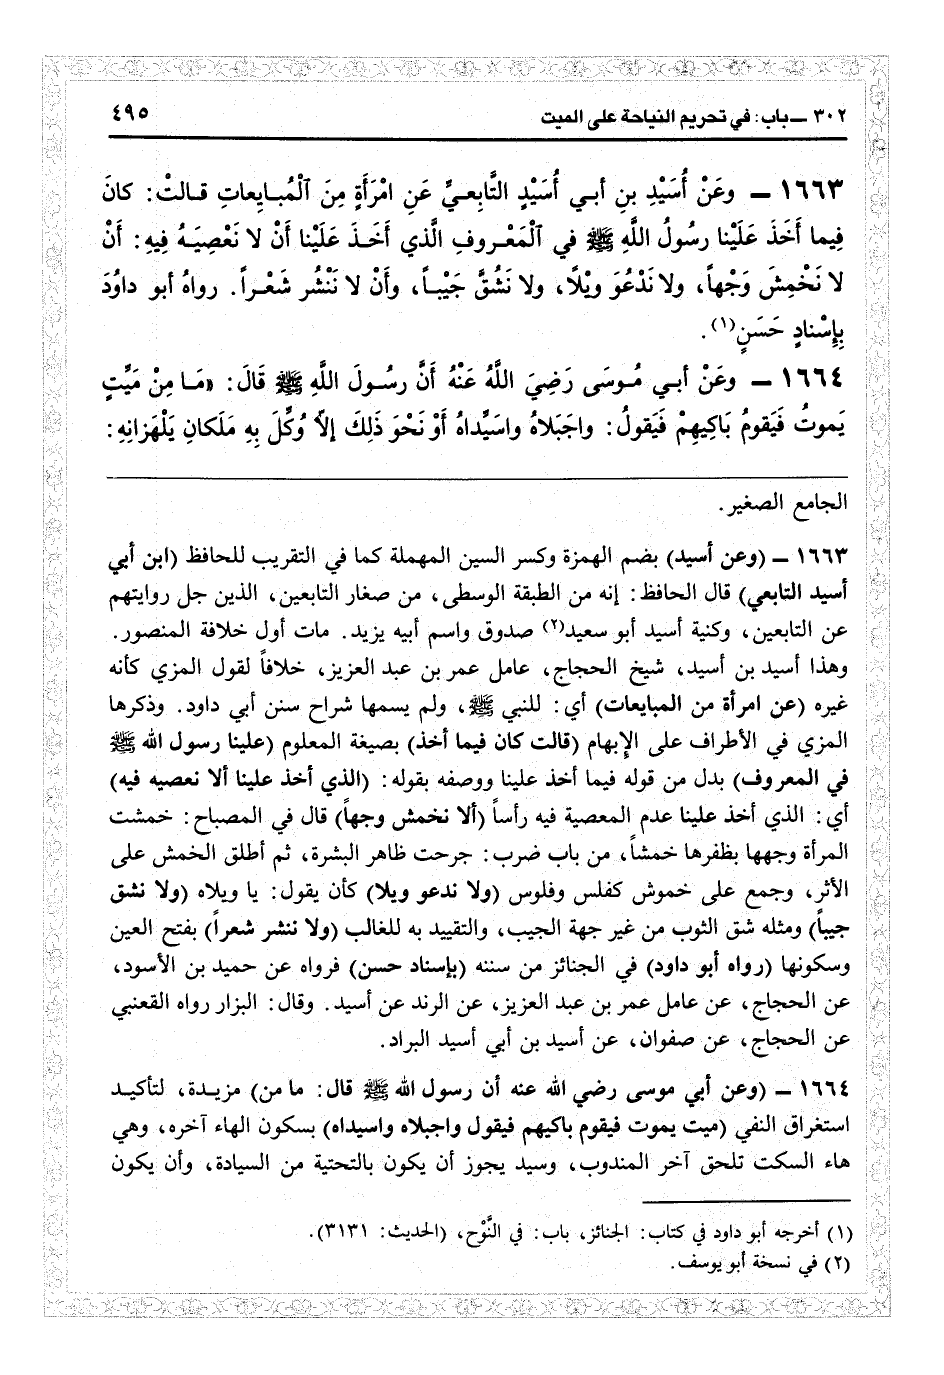 ٣٠٢ ــ باب: في تحريم النياحة على الميت ٤٩٥
١٦٦٣ ــ وعَنْ أُسَيْدِ بنِ أبـي أُسَيْدٍ التَّابِعيِّ عَنِ امْرَأَةٍ مِنَ ٱلْمُبايِعاتِ قـالتْ: كانَ
فِيما أَخَذَ عَلَيْنا رسُولُ اللَّهِ ﷺ في ٱلْمَعْـروفِ الَّذي أَخَـذَ عَلَيْنا أَنْ لا نَعْصِيَـهُ فِيهِ: أَنْ
لا نَخْمِشَ وَجْهاً، ولا نَدْعُوَ وَيْلًا، ولا نَشُقَّ جَيْبـاً، وأَنْ لا نَنْشُر شَعْـراً. رواهُ أبو داوُدَ
بِإِسْنادٍ حَسَنٍ(١).
١٦٦٤ ــ وعَنْ أبـي مُـوسَى رَضِيَ اللَّهُ عَنْهُ أَنَّ رسُـولَ اللَّهِ ﷺ قَالَ: «مَـا مِنْ مَيِّتٍ
يَموتُ فَيَقومُ بَاكِيهِمْ فَيَقولُ: واجَبَلاهُ واسَيِّداهُ أَوْ نَحْوَ ذَلِكَ إلاّ وُكِّلَ بِهِ مَلَكانِ يَلْهَزانِهِ:
الجامع الصغير.
١٦٦٣ ــ (وعن أسيد) بضم الهمزة وكسر السين المهملة كما في التقريب للحافظ (ابن أبي
أسيد التابعي) قال الحافظ: إنه من الطبقة الوسطى، من صغار التابعين، الذين جل روايتهم
عن التابعين، وكنية أسيد أبو سعيد(٢) صدوق واسم أبيه يزيد. مات أول خلافة المنصور.
وهذا أسيد بن أسيد، شيخ الحجاج، عامل عمر بن عبد العزيز، خلافاً لقول المزي كأنه
غيره (عن امرأة من المبايعات) أي: للنبي ﷺ، ولم يسمها شراح سنن أبي داود. وذكرها
المزي في الأطراف على الإبهام (قالت كان فيما أخذ) بصيغة المعلوم (علينا رسول الله ﷺ
في المعروف) بدل من قوله فيما أخذ علينا ووصفه بقوله: (الذي أخذ علينا ألا نعصيه فيه)
أي: الذي أخذ علينا عدم المعصية فيه رأساً (ألا نخمش وجهاً) قال في المصباح: خمشت
المرأة وجهها بظفرها خمشاً، من باب ضرب: جرحت ظاهر البشرة، ثم أطلق الخمش على
الأثر، وجمع على خموش كفلس وفلوس (ولا ندعو ويلا) كأن يقول: يا ويلاه (ولا نشق
جيباً) ومثله شق الثوب من غير جهة الجيب، والتقييد به للغالب (ولا ننشر شعراً) بفتح العين
وسكونها (رواه أبو داود) في الجنائز من سننه (بإسناد حسن) فرواه عن حميد بن الأسود،
عن الحجاج، عن عامل عمر بن عبد العزيز، عن الرند عن أسيد. وقال: البزار رواه القعنبي
عن الحجاج، عن صفوان، عن أسيد بن أبي أسيد البراد.
١٦٦٤ ــ (وعن أبي موسى رضي الله عنه أن رسول الله ﷺ قال: ما من) مزيـدة، لتأكيـد
استغراق النفي (ميت يموت فيقوم باكيهم فيقول واجبلاه واسيداه) بسكون الهاء آخره، وهي
هاء السكت تلحق آخر المندوب، وسيد يجوز أن يكون بالتحتية من السيادة، وأن يكون
(١) أخرجه أبو داود في كتاب: الجنائز، باب: في النَّوْح، (الحديث: ٣١٣١).
(٢) في نسخة أبو يوسف.